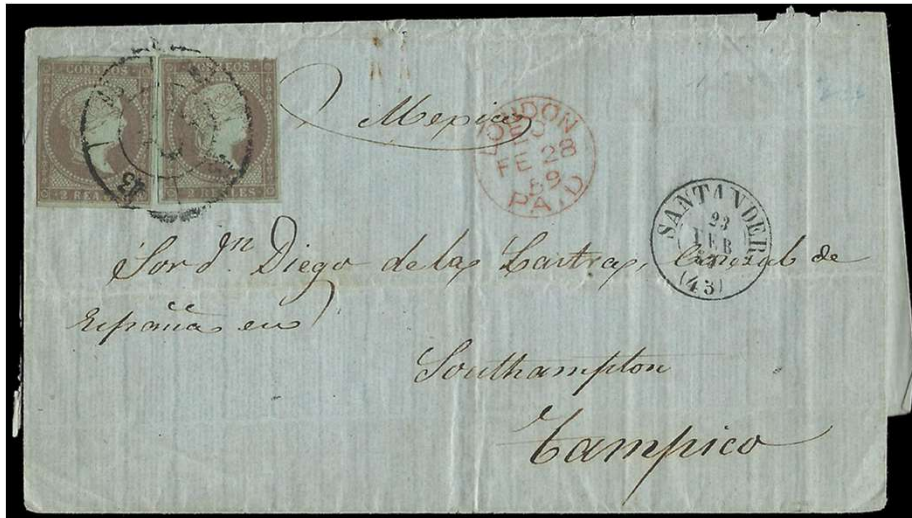 CORREOS CORREOS
2 REALES 2 REALES
13
Mexico
LONDON
FE 28
59
PAID
SANTANDER
23
FEB
(43)
Sor dn Diego de las Consul de
España en
Southampton
Tampico